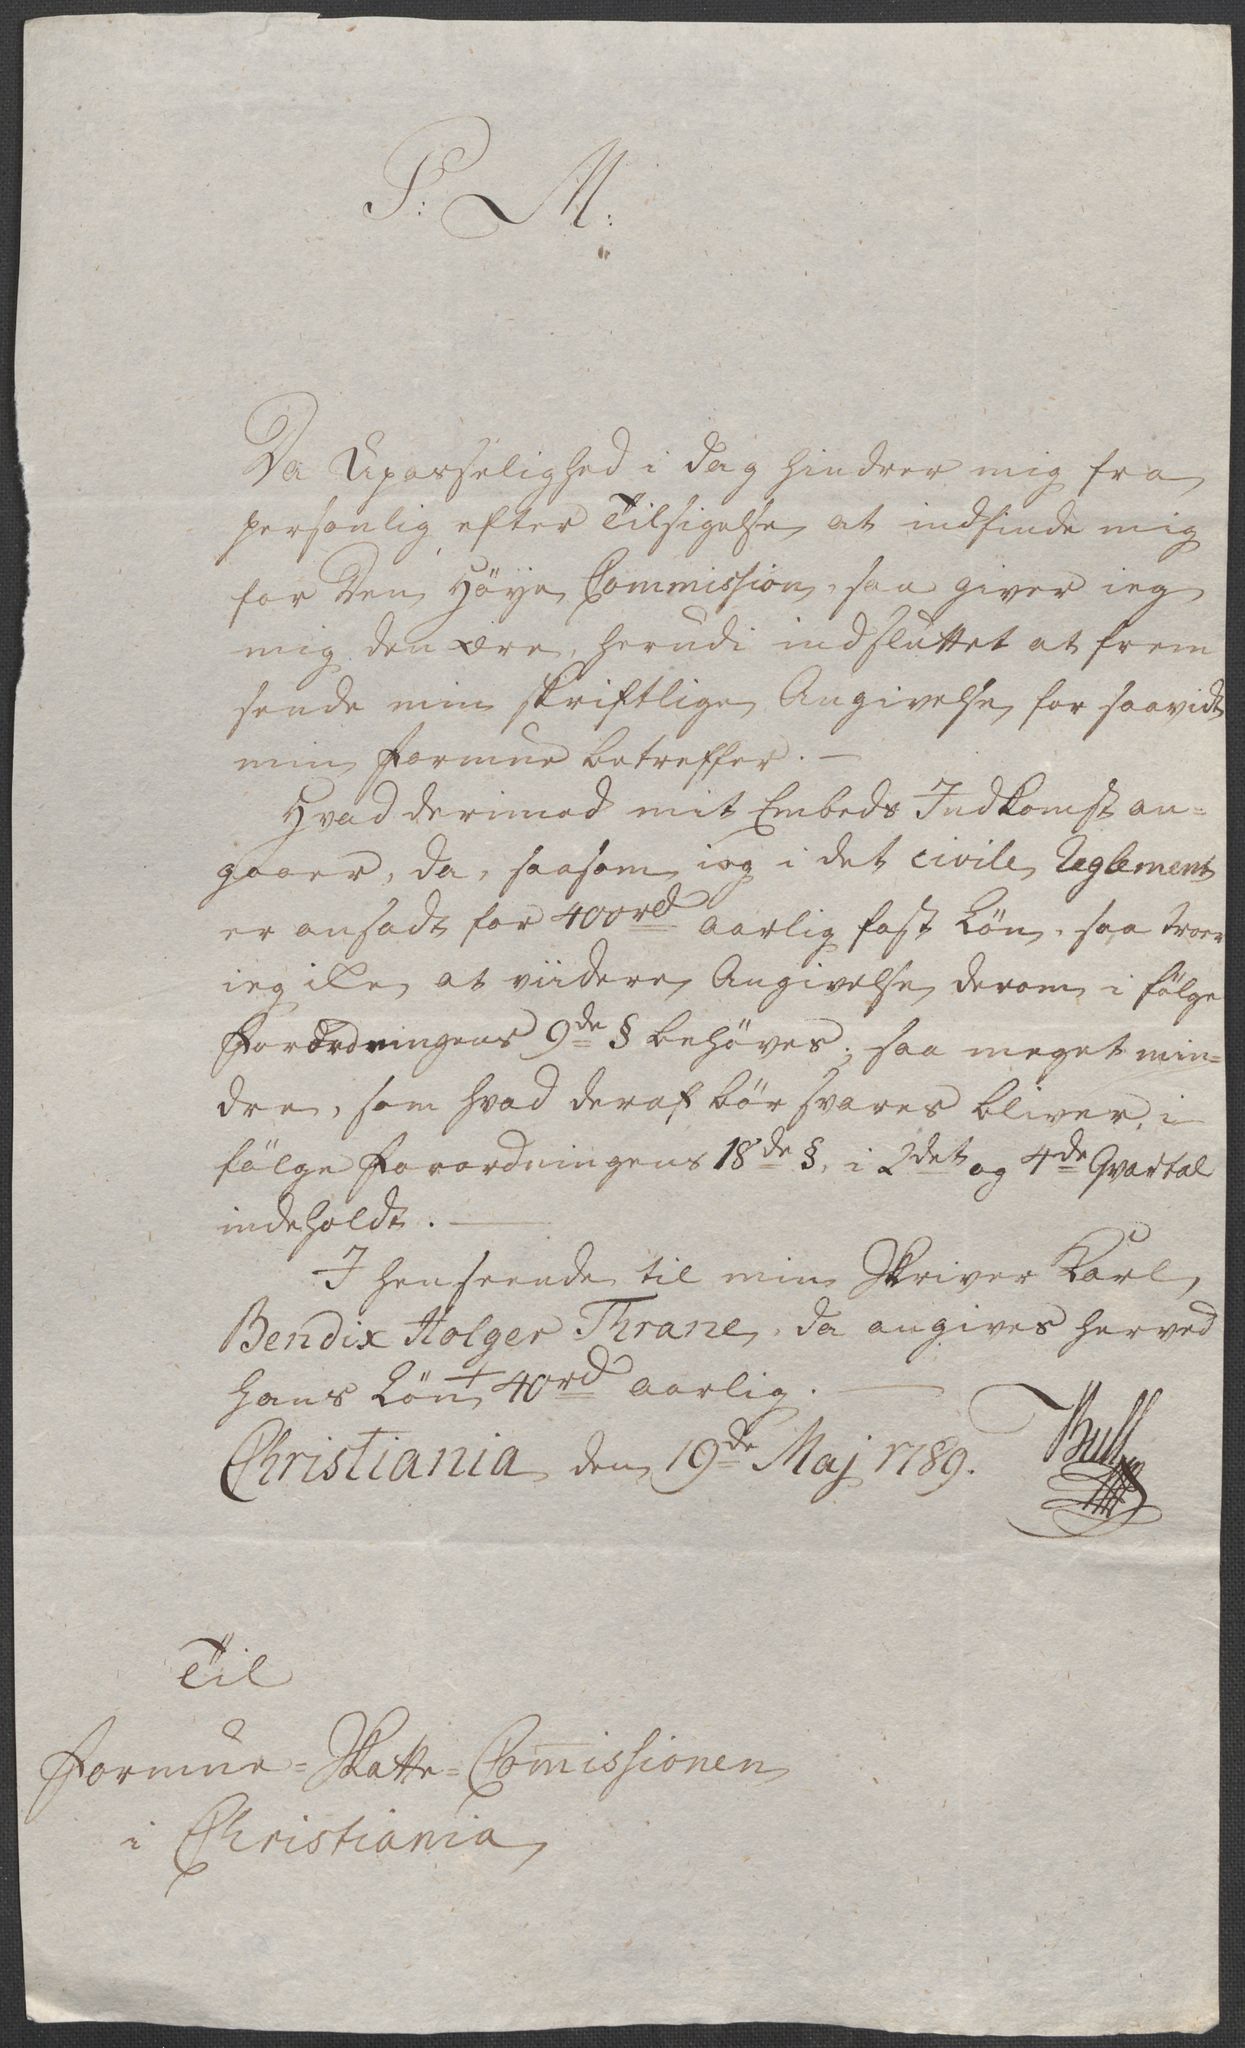 P: M:
Da Upasselighed i dag hindrer mig fra
personlig efter Tilsigelse at indfinde mig
for Den Høye Commission, saa giver ieg
mig den ære, herudi indsluttet at frem
sende min skriftlige Angivelse for saavidt
min Formue betreffer. —
Hvad derimod mit Embeds Indkomst an=
gaaer, da, saasom ieg i det civile Reglement
er ansadt for 400 rd aarlig fast Løn, saa troer
ieg ikke at viidere Angivelse derom i følge
Forordningens 9de § behøves; saa meget min=
dre, som hvad deraf bør svares bliver, i
følge Forordningens 18de §, i 2det og 4de Qvartal
indeholdt. —
I henseende til min Skriver Karl,
Bendix Holger Thrane, da angives herved
hans Løn + 40 rd aarlig. —
Christiania den 19de Maj 1789. Bull
Til
Formue=Skatte=Com̄issionen
i Christiania